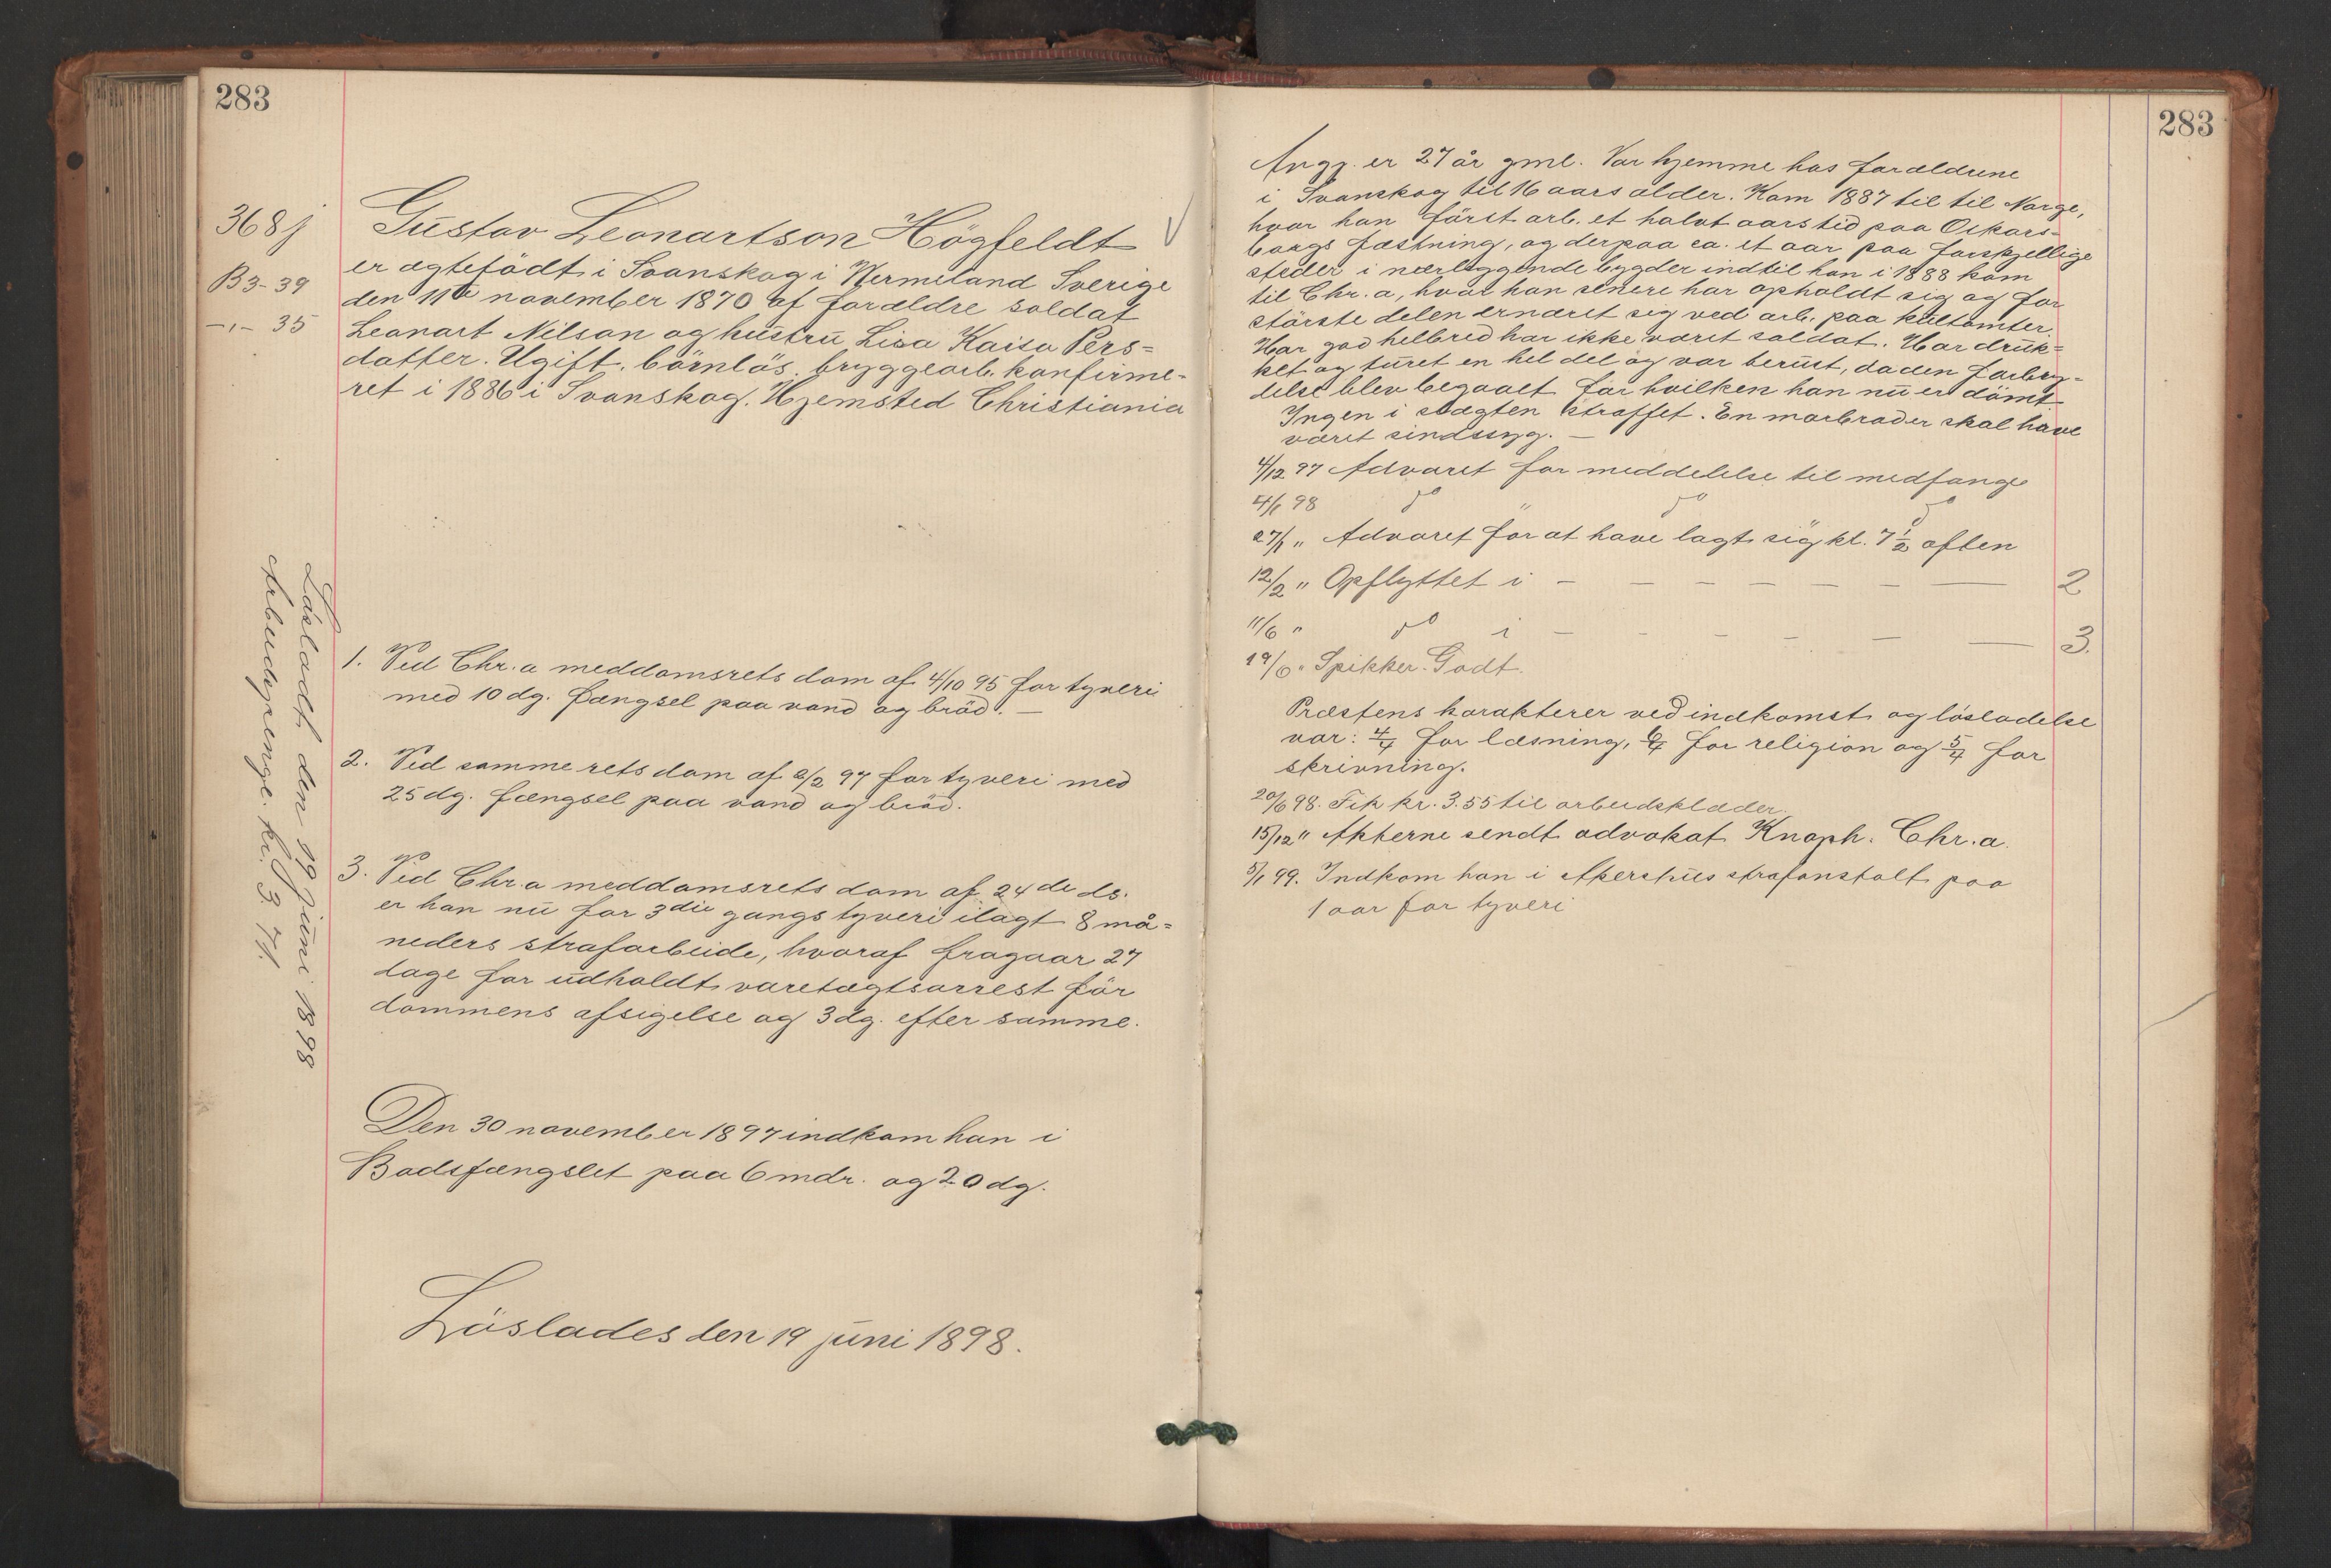 283
368 j
B3-39
-"- 35
Gustav Leonartson Högfeldt
er ægtefödt i Svanskog i Wermeland Sverige
den 11te november 1870 af forældre soldat
Leonart Nilson og hustru Lisa Kaisa Pers=
datter. Ugift, börnlös, bryggearb. konfirme-
ret i 1886 i Svanskog. Hjemsted Christiania
1. Ved Chr.a meddomsrets dom af 4/10 95 for tyveri
med 10 dg. fængsel paa vand og bröd. —
2. Ved samme rets dom af 2/2 97 for tyveri med
25 dg. fængsel paa vand og bröd.
3. Ved Chr.a meddomsrets dom af 24de ds.
er han nu for 3die gangs tyveri ilagt 8 må=
neders strafarbeide, hvoraf fragaar 27
dage for udholdt varetægtsarrest för
dommens afsigelse og 3 dg. efter samme.
Den 30 november 1897 indkom han i
Bodsfængslet paa 6 mdr. og 20 dg.
Löslades den 19 juni 1898.
Lösladt den 19 juni 1898
Arbeidspenge. kr. 3.71.
283
Angj. er 27 år gml. Var hjemme hos forældrene
i Svanskog til 16 aars alder. Kom 1887 til til Norge,
hvor han först arb. et halvt aars tid paa Oskars-
borgs fæstning, og derpaa ca. et aar paa forskjellige
steder i nærliggende bygder indtil han i 1888 kom
til Chr.a, hvor han senere har opholdt sig og for
störste delen ernæret sig ved arb. paa kultomter.
Har god helbred har ikke været soldat. Har druk=
ket og turet en hel del og var berust, da den forbry-
delse blev begaaet for hvilken han nu er dömt.
Ingen i slægten straffet. En morbroder skal have
været sindssyg. —
4/12 97 Advaret for meddelelse til medfange
4/1 98 do " do do
27/1 " Advaret for at have lagt sig kl. 7 1/2 aften
12/2 " Opflyttet i - - - - - - — 2
11/6 " do i - - - - - — 3.
19/6 " Spikker. Godt.
Præstens karakterer ved indkomst og lösladelse
var: 4/4 for læsning, 6/4 for religion og 5/4 for
skrivning.
20/6 98. Fik kr. 3.55 til arbeidsklæder.
15/12 " Akterne sendt advokat Knoph. Chr.a.
5/1 99. Indkom han i Akershus strafanstalt paa
1 aar for tyveri